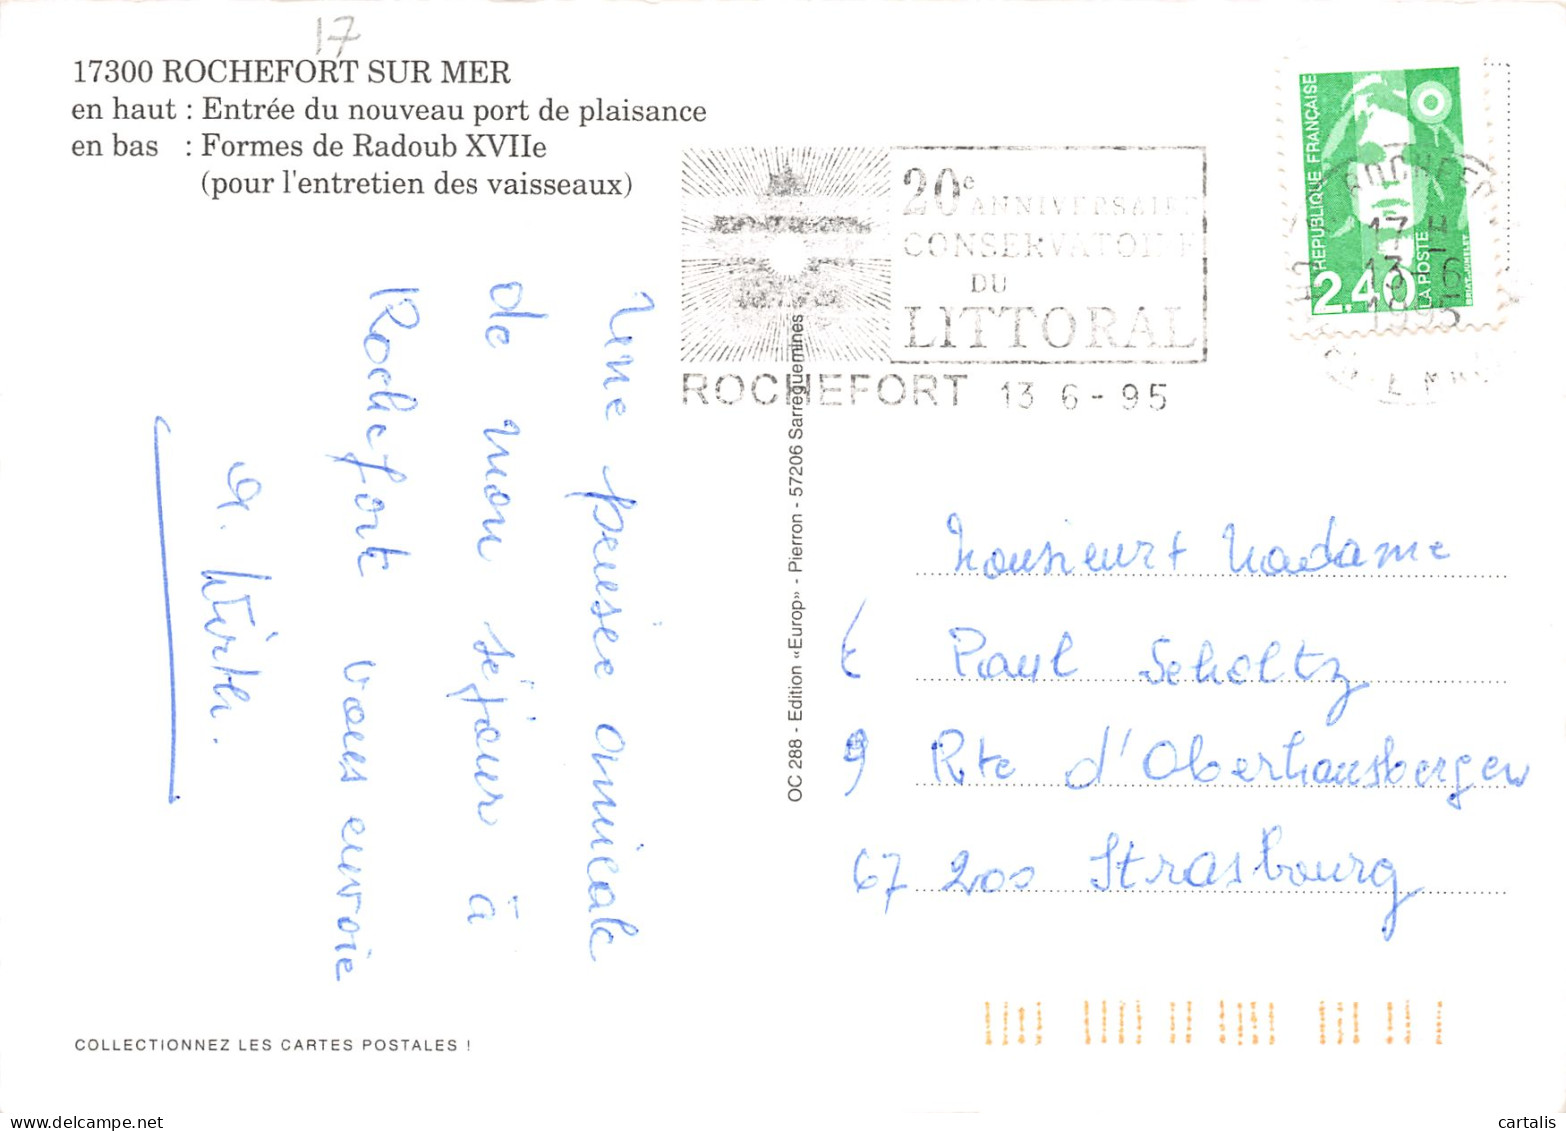 17
17300 ROCHEFORT SUR MER
en haut : Entrée du nouveau port de plaisance
en bas : Formes de Radoub XVIIe
(pour l'entretien des vaisseaux)
20e ANNIVERSAIRE
CONSERVATOIRE
DU
LITTORAL
ROCHEFORT 13 6 - 95
REPUBLIQUE FRANÇAISE
2,40 LA POSTE
BRIAT.JUMELET
17 H
13-6
1995
Une pensée amicale
de mon séjour à
Rochefort vous envoie
OC 288 - Edition «Europ» - Pierron - 57206 Sarreguemines
Monsieur + Madame
Paul Scholtz
9 Rte d'Oberhausbergen
67 200 Strasbourg
COLLECTIONNEZ LES CARTES POSTALES !
cartalis